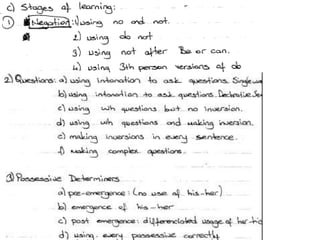 c) Stages of learning:
① Negation: 1) using no and not.
2) using do not
3) using not after Be or can.
4) using 3th person versions of do
2) Questions: a) using intonation to ask questions. Single
b) using intonation to ask questions. Declarative
c) using wh questions but no inversion.
d) using wh questions and making inversion.
e) making inversions in every sentence.
f) making complex questions.
③ Possessive Determiners
a) pre-emergence: (no use of his-her)
b) emergence of his-her
c) post emergence: differenciated usage of her-his
d) using every possessive correctly